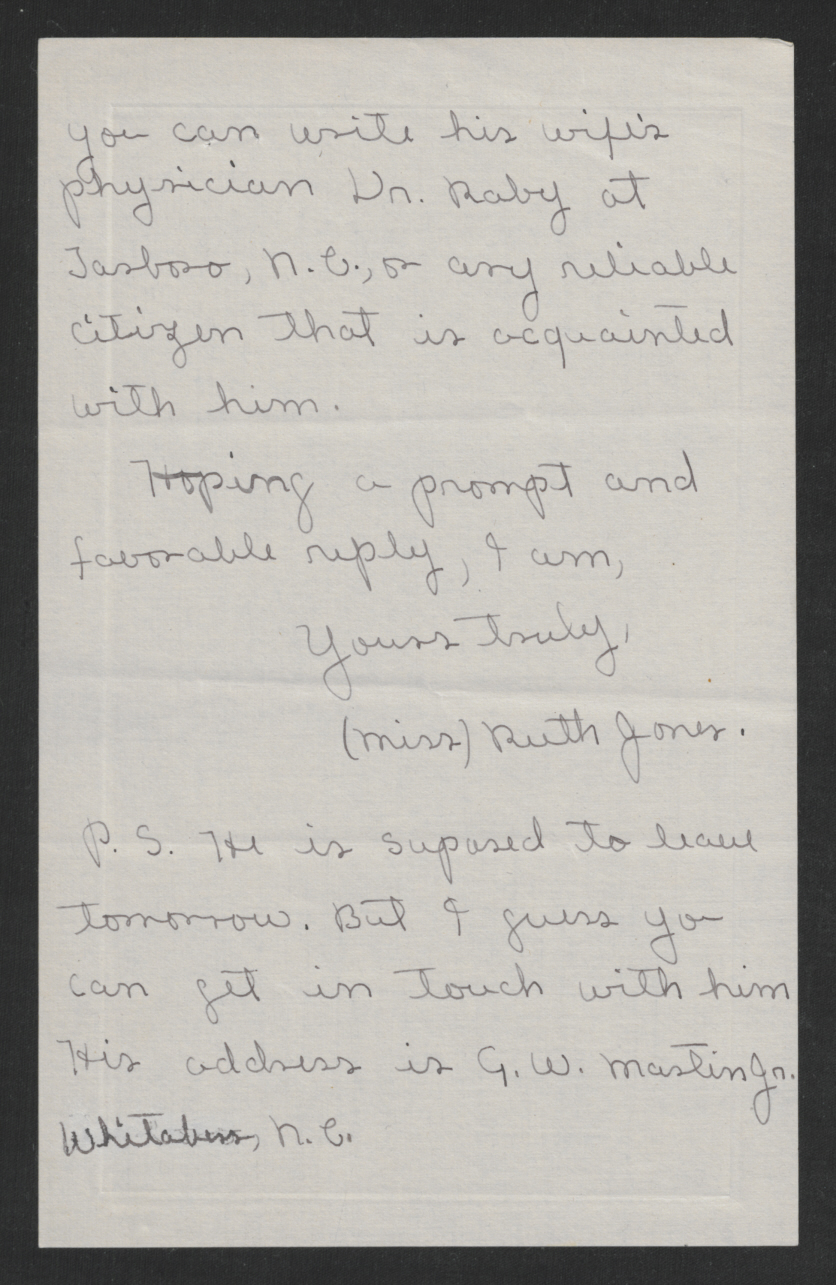 you can write his wife's
physician Dr. Raby at
Tarboro, N.C., or any reliable
citizen that is acquainted
with him.
Hoping a prompt and
favorable reply, I am,
Yours truly,
(Miss) Ruth Jones.
P. S. He is suposed to leave
tomorrow. But I guess you
can get in touch with him
His address is G. W. Mastin Jr.
Whitakers, N. C.